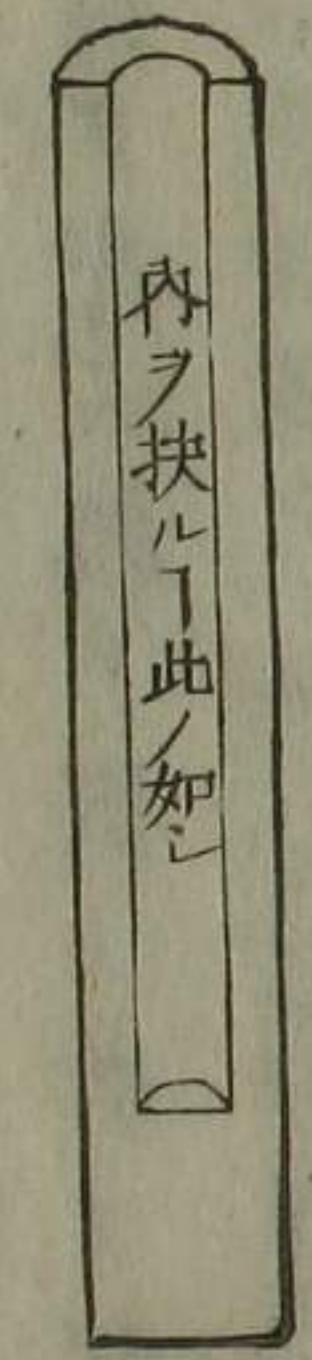 内ヲ抉ルヿ此ノ如シ